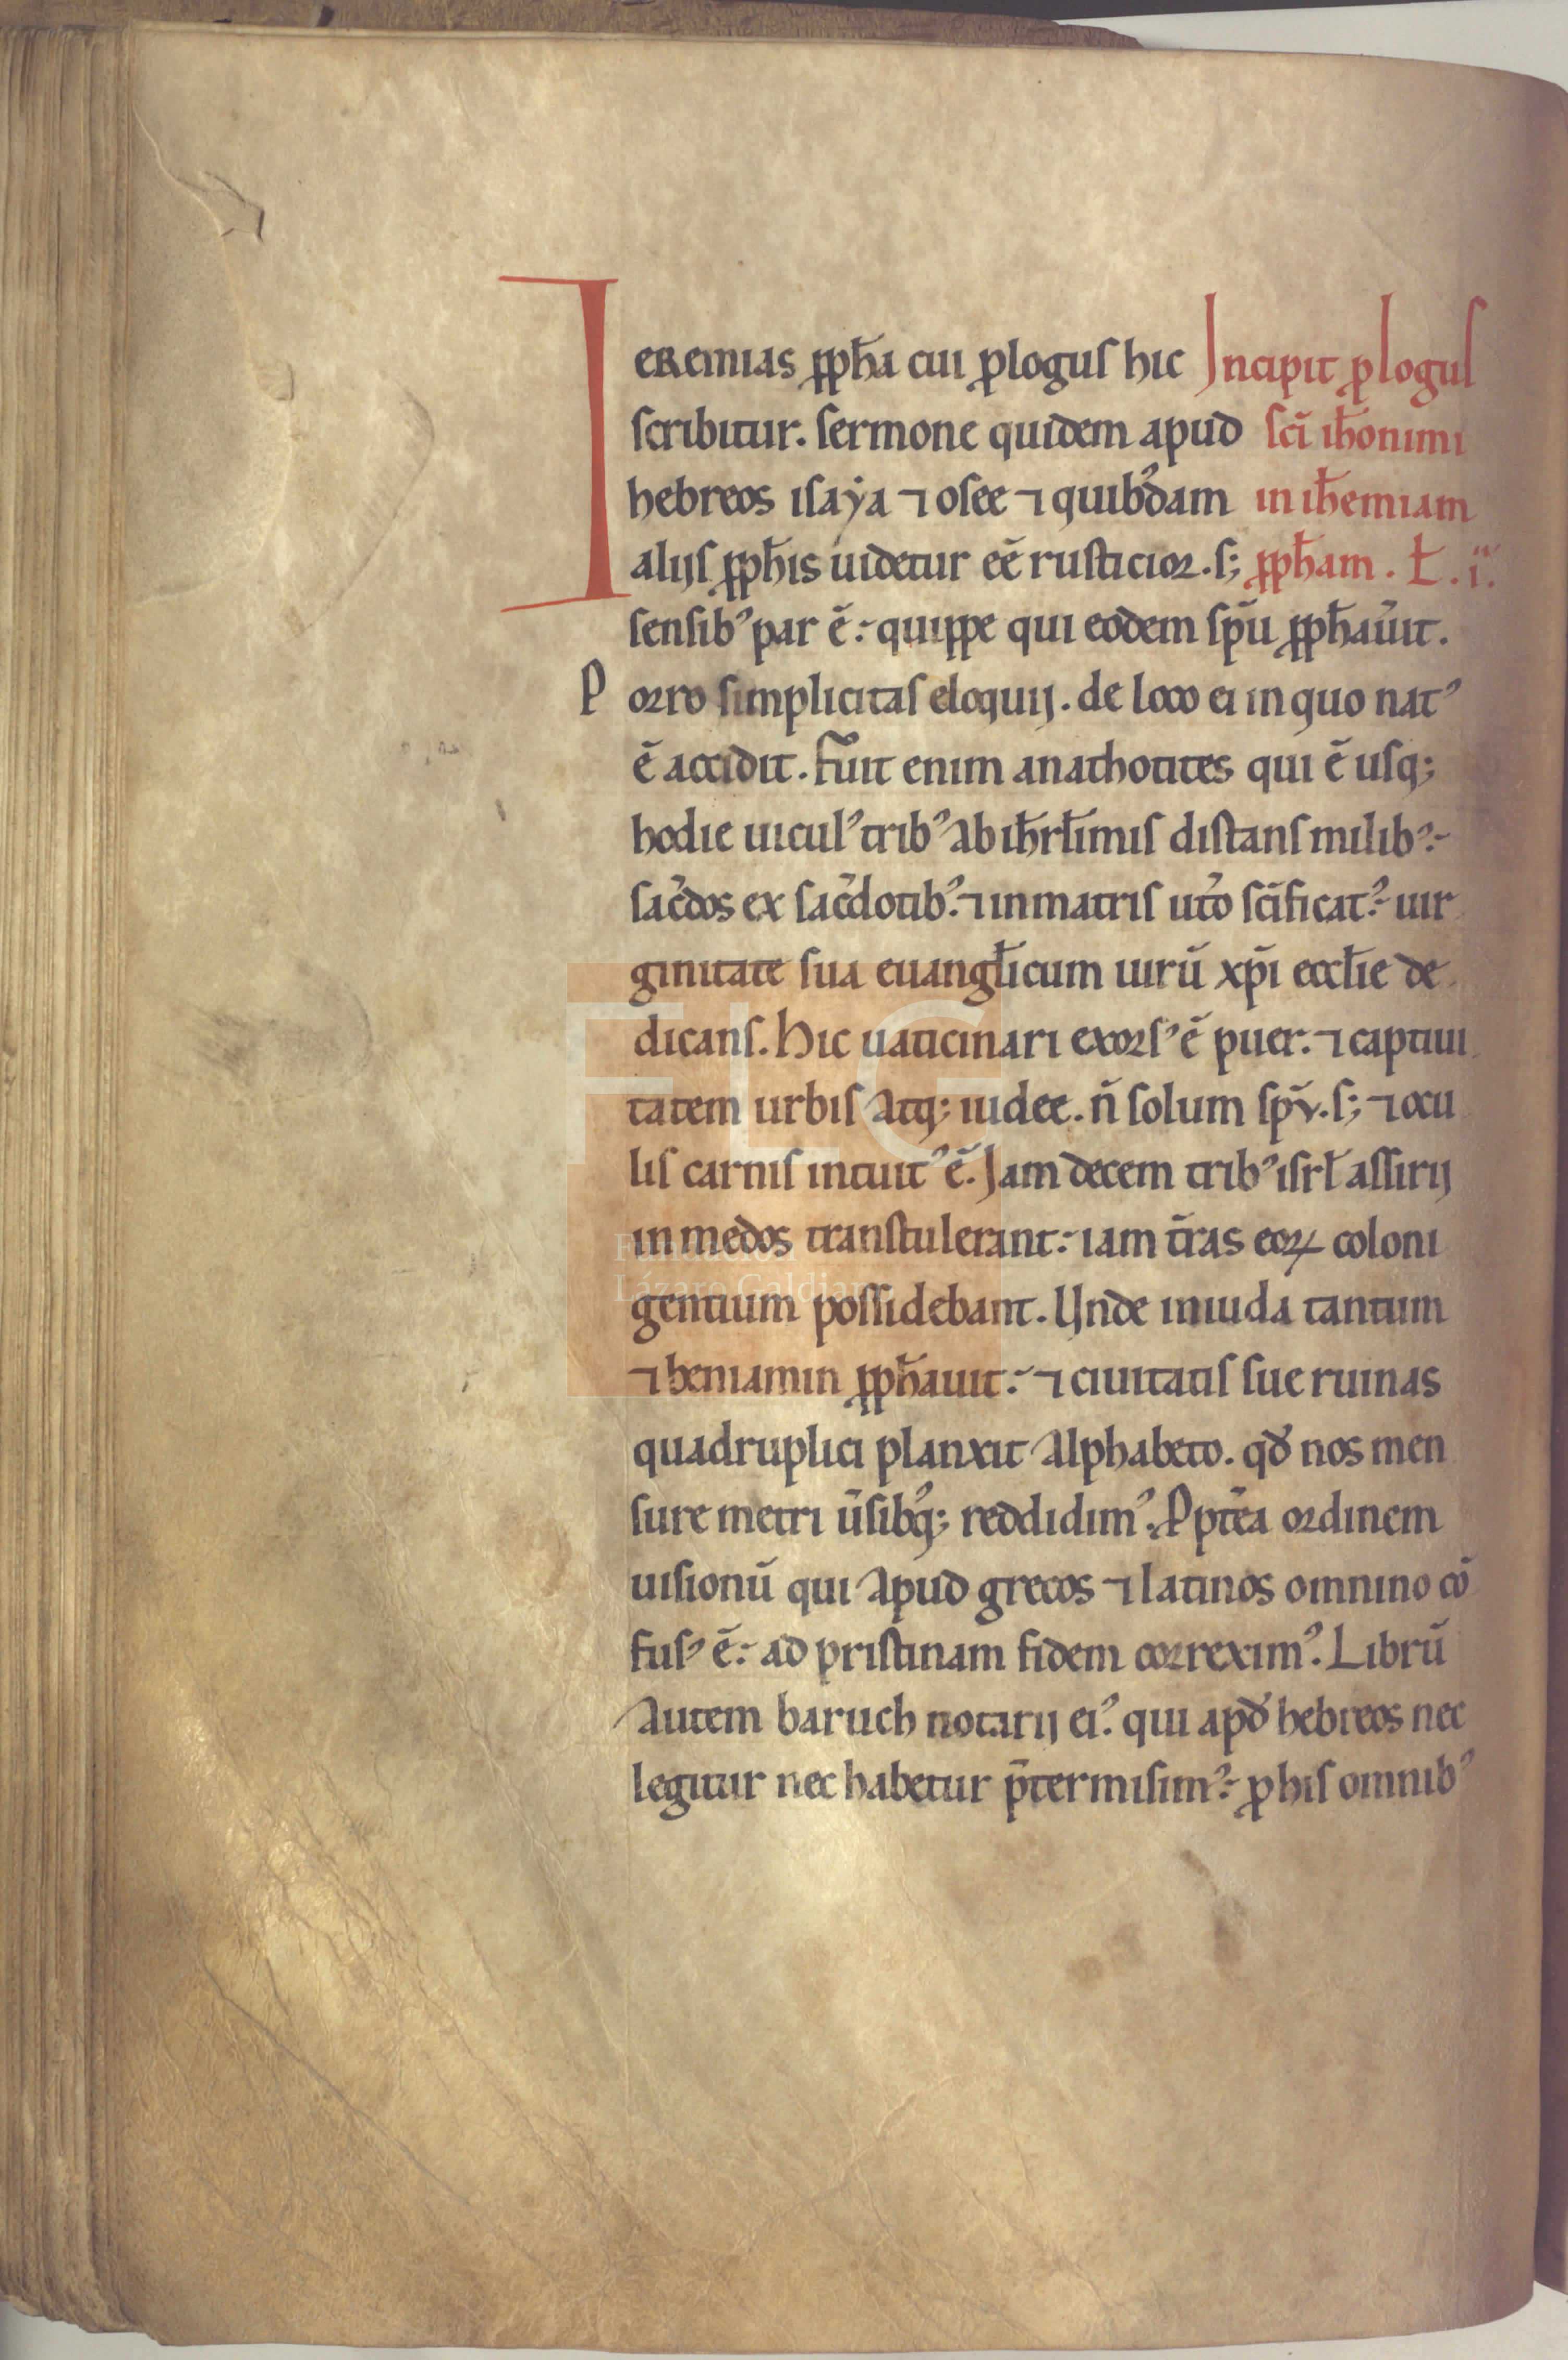 Ieremias ꝓph̄a cui ꝓlogus hic Incipit ꝓlogus
scribitur. sermone quidem apud sc̄i ih̄onimi
hebreos isaẏa ⁊ osee ⁊ quibꝰdam in ih̄emiam
alijs ꝓph̄is uidetur eē rusticior. s; ꝓph̄am. Ł. i.
sensibꝰ par ē: quippe qui eodem sp̄u ꝓph̄aũit.
Porro simplicitas eloquij. de loco ei in quo natꝰ
ē accidit. Fuit enim anathotites qui ē usq;
hodie uiculꝰ tribꝰ ab ih̄rłimis distans milibꝰ:
sac̃dos ex sac̃dotibꝰ: ⁊ in matris ut̃o sc̄ificatꝰ: uir
ginitate sua euangłicum uirū xp̄i eccłie de
dicans. Hic uaticinari exorsꝰ ē puer: ⁊ captiui
tatem urbis atq; iudee. n̄ solum sp̄u. s; ⁊ ocu
lis carnis intuitꝰ ē. Jam decem tribꝰ isrł assirij
in medos transtulerant: iam t̃ras eoꝝ coloni
gentium possidebant. Unde iniuda tantum
⁊ beniamin ꝓph̄auit: ⁊ ciuitatis sue ruinas
quadruplici planxit alphabeto. qđ nos men
sure metri ũsibꝰq; reddidimꝰ. Ꝓpt̃ea ordinem
uisionū qui apud grecos ⁊ latinos omnino cō
fusꝰ ē: ad pristinam fidem correximꝰ. Librū
autem baruch notarij eiꝰ. qui apđ hebreos nec
legitur nec habetur p̄termisimꝰ: ꝓ his omnibꝰ
FLG
Lázaro Galdiano